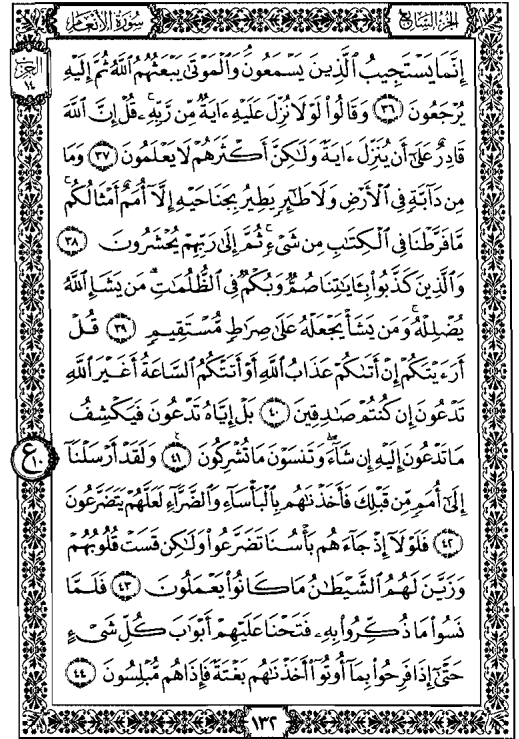 سُورَةُ الأَنْعَامِ
الجُزْءُ السَّابِع
الحِزْبُ ١٤
إِنَّمَا يَسْتَجِيبُ ٱلَّذِينَ يَسْمَعُونَ وَٱلْمَوْتَىٰ يَبْعَثُهُمُ ٱللَّهُ ثُمَّ إِلَيْهِ
يُرْجَعُونَ ٣٦ وَقَالُوا۟ لَوْلَا نُزِّلَ عَلَيْهِ ءَايَةٌ مِّن رَّبِّهِۦ قُلْ إِنَّ ٱللَّهَ
قَادِرٌ عَلَىٰٓ أَن يُنَزِّلَ ءَايَةً وَلَٰكِنَّ أَكْثَرَهُمْ لَا يَعْلَمُونَ ٣٧ وَمَا
مِن دَآبَّةٍ فِى ٱلْأَرْضِ وَلَا طَٰٓئِرٍ يَطِيرُ بِجَنَاحَيْهِ إِلَّآ أُمَمٌ أَمْثَالُكُم
مَّا فَرَّطْنَا فِى ٱلْكِتَٰبِ مِن شَىْءٍ ثُمَّ إِلَىٰ رَبِّهِمْ يُحْشَرُونَ ٣٨
وَٱلَّذِينَ كَذَّبُوا۟ بِـَٔايَٰتِنَا صُمٌّ وَبُكْمٌ فِى ٱلظُّلُمَٰتِ مَن يَشَإِ ٱللَّهُ
يُضْلِلْهُ وَمَن يَشَأْ يَجْعَلْهُ عَلَىٰ صِرَٰطٍ مُّسْتَقِيمٍ ٣٩ قُلْ
أَرَءَيْتَكُمْ إِنْ أَتَىٰكُمْ عَذَابُ ٱللَّهِ أَوْ أَتَتْكُمُ ٱلسَّاعَةُ أَغَيْرَ ٱللَّهِ
تَدْعُونَ إِن كُنتُمْ صَٰدِقِينَ ٤٠ بَلْ إِيَّاهُ تَدْعُونَ فَيَكْشِفُ
مَا تَدْعُونَ إِلَيْهِ إِن شَآءَ وَتَنسَوْنَ مَا تُشْرِكُونَ ٤١ وَلَقَدْ أَرْسَلْنَآ
ع ١٠
إِلَىٰٓ أُمَمٍ مِّن قَبْلِكَ فَأَخَذْنَٰهُم بِٱلْبَأْسَآءِ وَٱلضَّرَّآءِ لَعَلَّهُمْ يَتَضَرَّعُونَ
٤٢ فَلَوْلَآ إِذْ جَآءَهُم بَأْسُنَا تَضَرَّعُوا۟ وَلَٰكِن قَسَتْ قُلُوبُهُمْ
وَزَيَّنَ لَهُمُ ٱلشَّيْطَٰنُ مَا كَانُوا۟ يَعْمَلُونَ ٤٣ فَلَمَّا
نَسُوا۟ مَا ذُكِّرُوا۟ بِهِۦ فَتَحْنَا عَلَيْهِمْ أَبْوَٰبَ كُلِّ شَىْءٍ
حَتَّىٰٓ إِذَا فَرِحُوا۟ بِمَآ أُوتُوٓا۟ أَخَذْنَٰهُم بَغْتَةً فَإِذَا هُم مُّبْلِسُونَ ٤٤
١٣٢